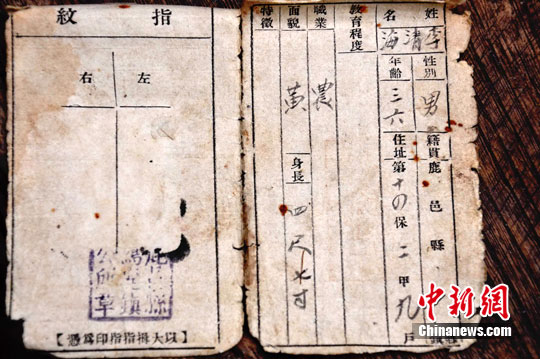 姓名 李清海
性別 男 籍貫 鹿邑縣
年齡 三六 住址 第十四保二甲九戶
教育程度
職業 農
面貌 黃 身長 四尺七寸
特徵
指紋
左 右
【以大拇指指印爲憑】
中新网
www.chinanews.com